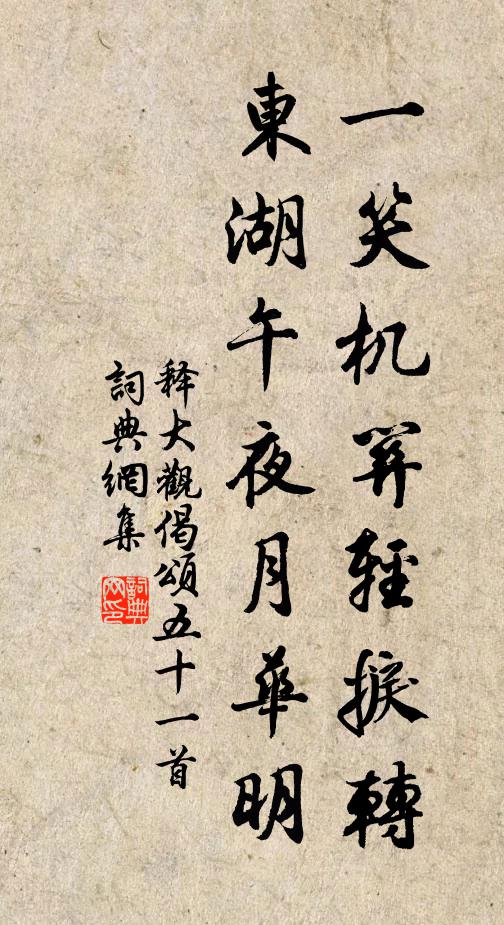 一笑机関輕捩轉
東湖午夜月華明
释大觀偈頌五十一首
詞典網集
詞典网印